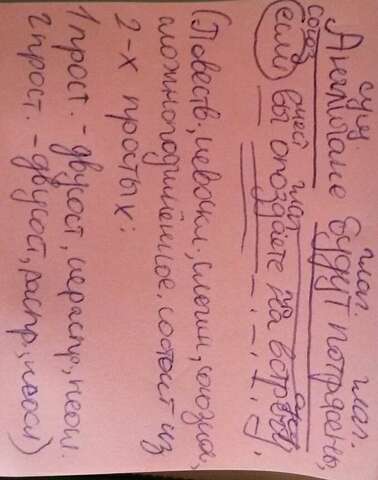 сущ. глаг. глаг.
Англичане будут потрясены,
союз мест глаг. сущ
если вы опоздаете на встречу.
(Повеств., невоскл., сложн., союзное,
сложноподчинённое, состоит из
2-х простых:
1 прост. - двусост, нераспр, неосл.
2 прост. - двусост, распр, неосл)